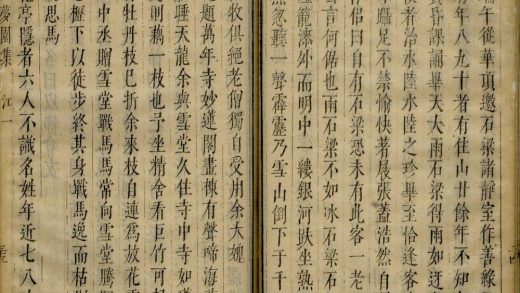 端午從華頂邀石梁諸靜室作善緣
年八九十者有住山廿餘年不知
昏課誦畢天大雨石梁得雨如迓
者治水陸之珍畢至恰逢客
足不禁愉快著屐張蓋浩然自
侶曰自有石梁恐未有此客一老
言何偌也雨石梁不如冰石梁
龍漆外而明中一縷銀河趺坐熟
忽聽一聲霹靂乃雪山倒下于千
牧俱絕老僧獨自受用余大
題萬年寺妙道閣畫棟有聲啼海
睡天龍余與雪堂久住寺中寺如
牡丹枝巳折余來枝自連為放花
則藕一枝也予坐精舍看巨竹可
中丞贈雪堂戰馬馬常向雪堂騰
櫪下以徒步終其身戰馬逸而枯
思馬
亭隱者六人不識名姓年近七八十
夢園集 江一